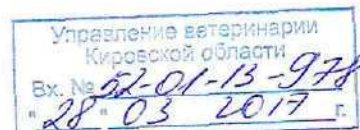 Управление ветеринарии
Кировской области
Вх. № 52-01-13-978
"28" 03 2017 г.